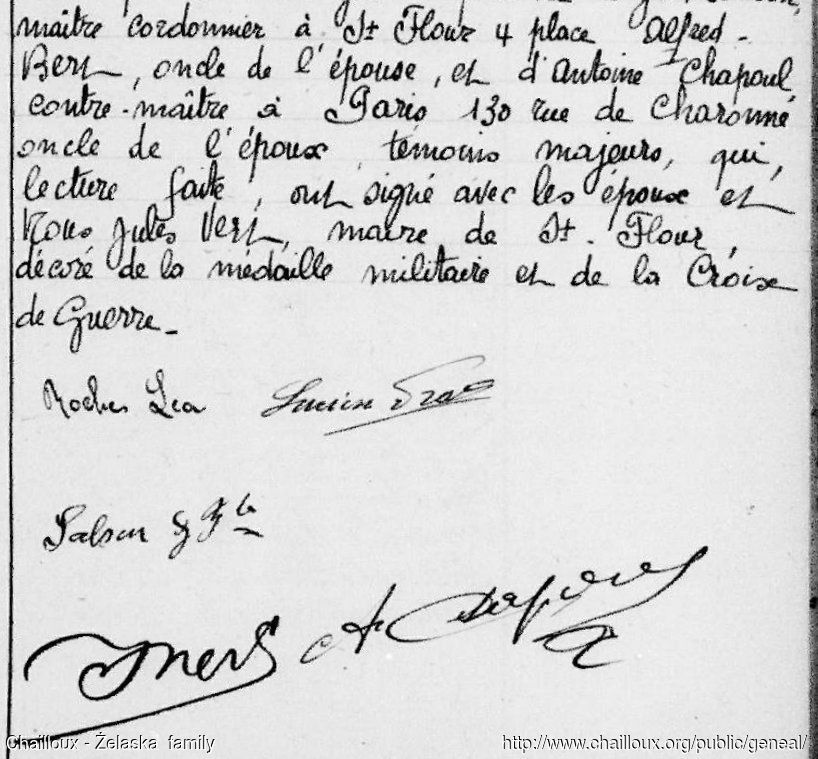 maître cordonnier à St Flour 4 place Alfred-
Bert, oncle de l'épouse, et d'Antoine Chapoul,
contre-maître à Paris 130 rue de Charonne
oncle de l'époux, témoins majeurs, qui,
lecture faite, ont signé avec les époux et
Nous Jules Vert, maire de St-Flour,
décoré de la médaille militaire et de la Croix
de Guerre_
Roches Léa Lucien
Salson
Chailloux - Želaska family http://www.chailloux.org/public/geneal/